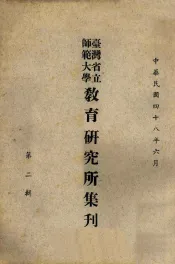 中華民國四十八年六月
臺灣省立
師範大學
教育研究所集刊
第二輯